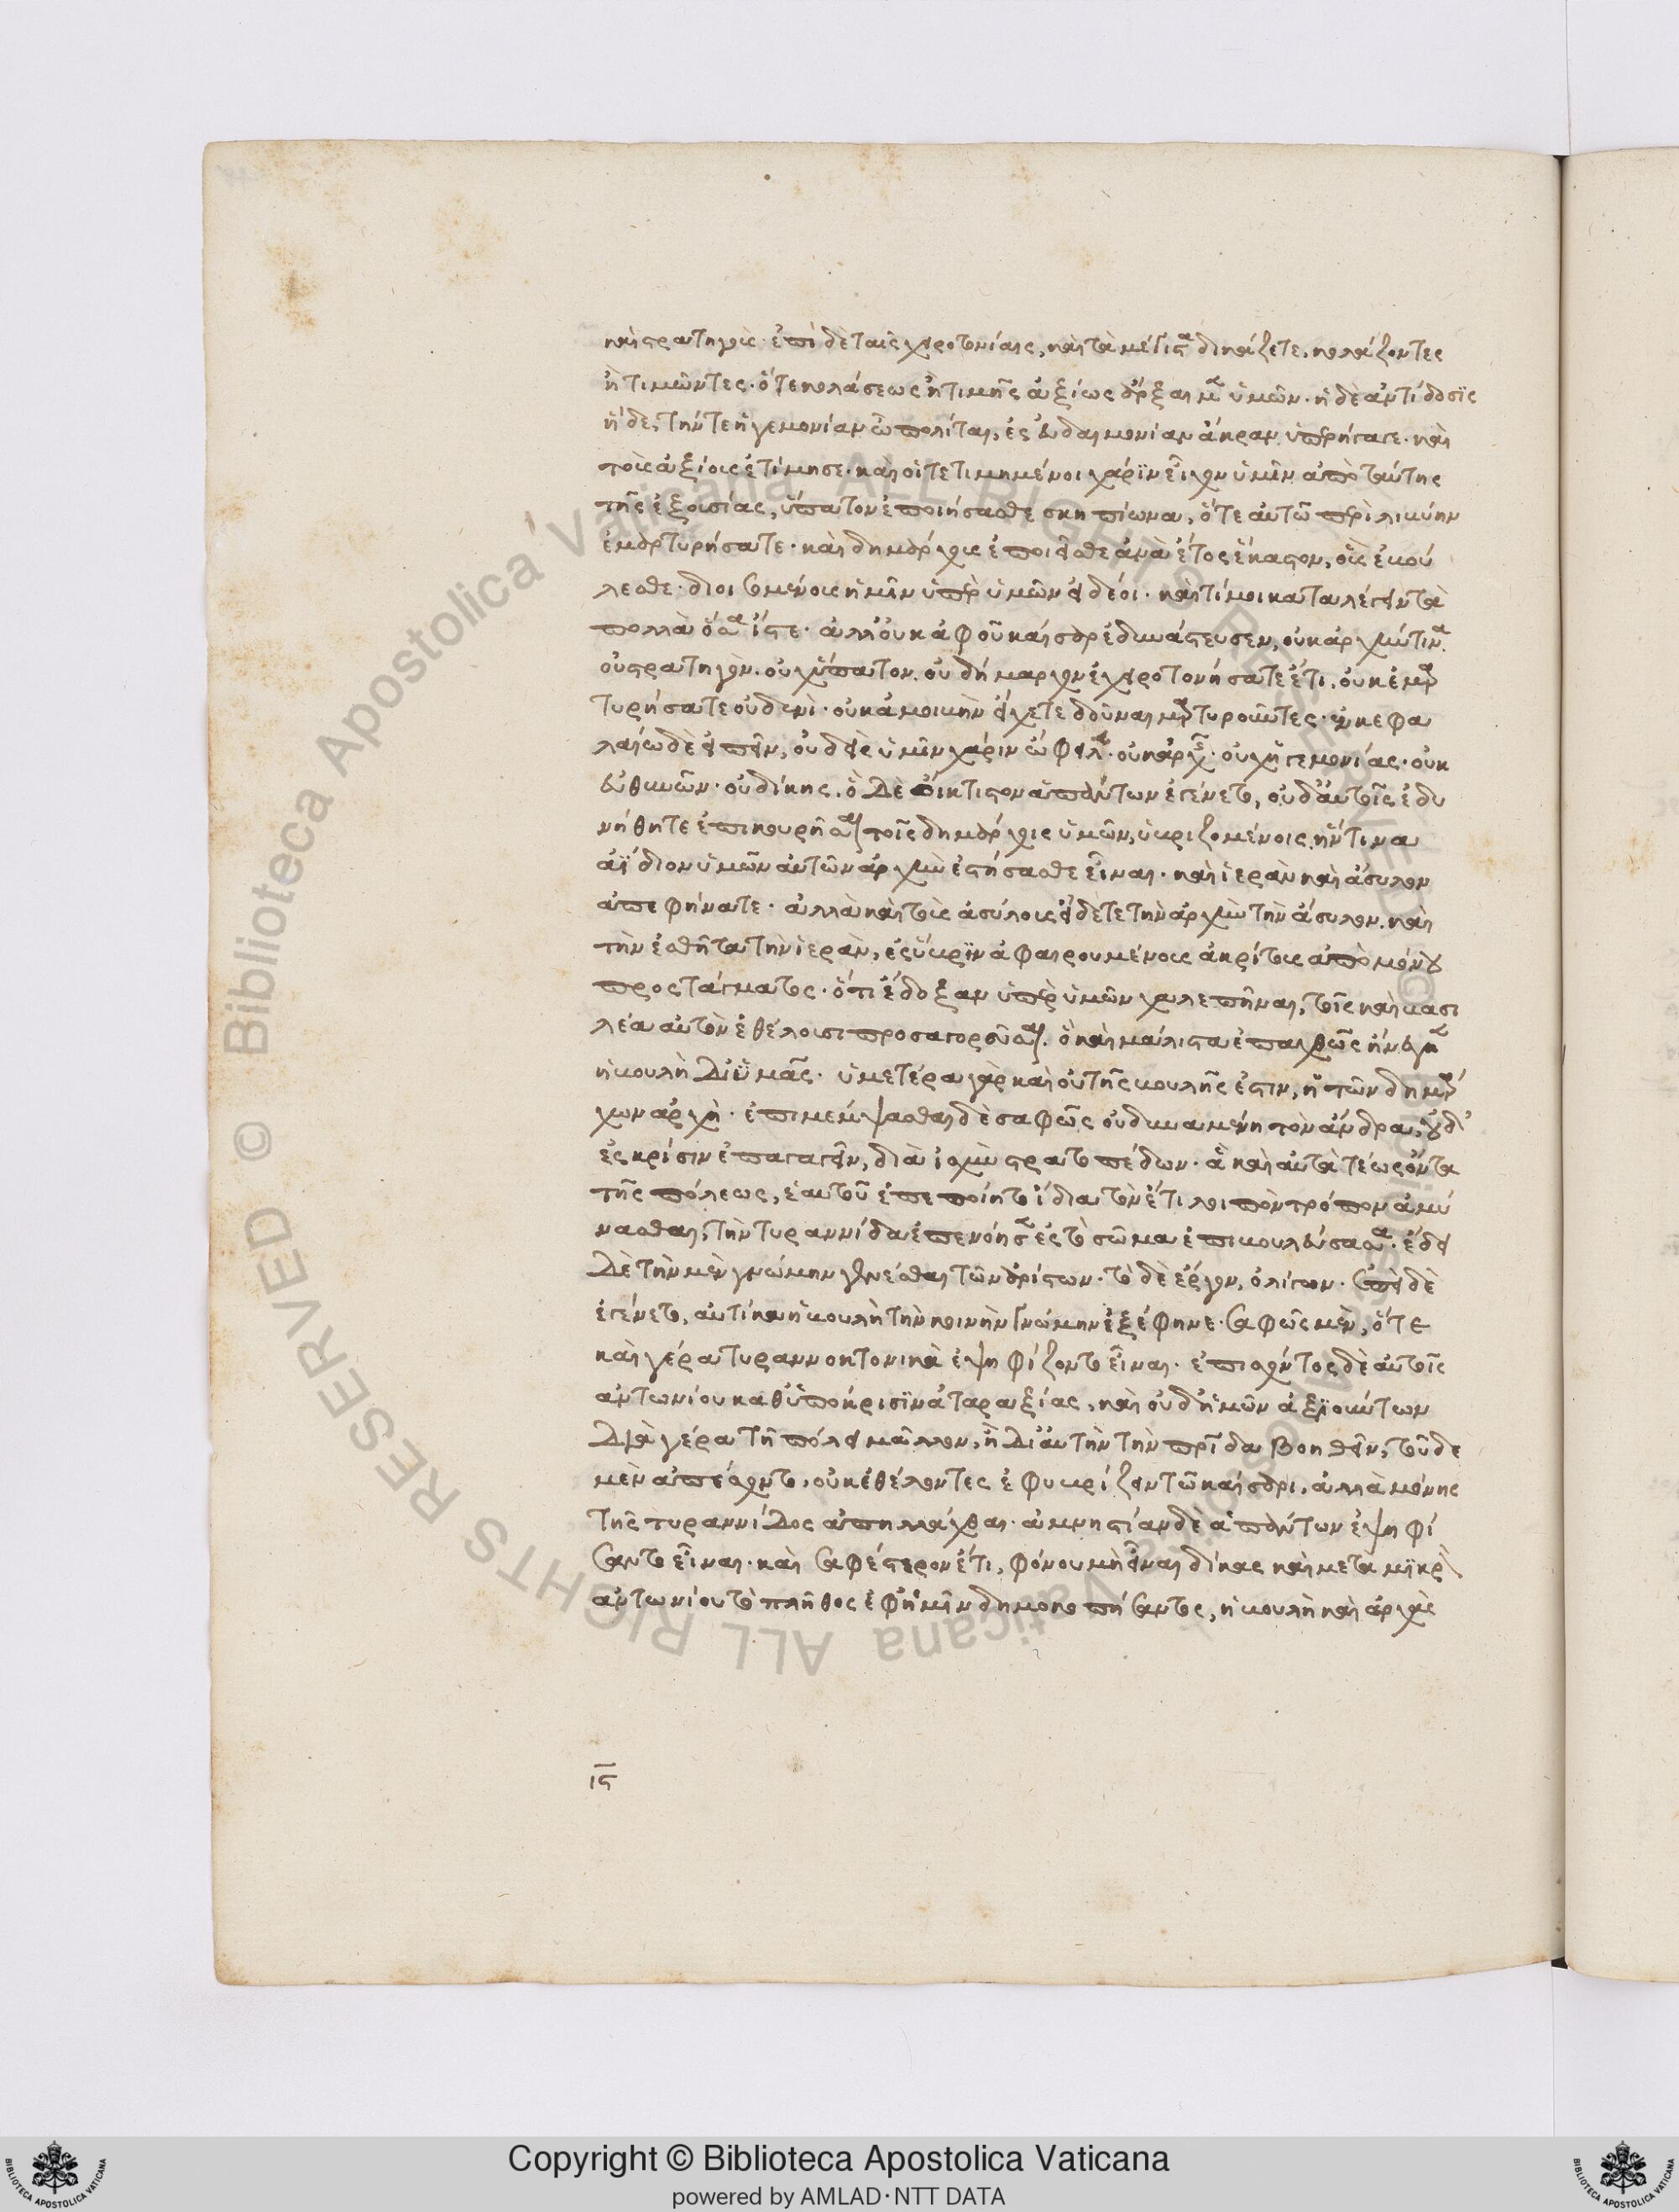 καὶ στρατηγοῖς· ἐπὶ δὲ ταῖς χειροτονίαις, καὶ τὰ μέγιστα δικάζετε, κολάζοντες
ἢ τιμῶντες· ὅτε κολάσεως ἢ τιμῆς ἀξίως ἄρξαιμεν ὑμῶν· ἡ δὲ ἀντίδοσϊς
ἥδε, τήν τε ἡγεμονίαν ὦ πολῖται, ἐς εὐδαιμονίαν ἄκραν ὑπερήγαγε· καὶ
τοῖς ἀξίοις ἐτίμησε· καὶ οἱ τετιμημένοι χάρϊν εἶχον ὑμῖν ἀπὸ ταύτης
τῆς ἐξουσίας, ὕπατον ἐποιήσασθε σκηπίωνα, ὅτε αὐτῶ περὶ λιβύην
ἐμαρτυρήσατε· καὶ δημάρχους ἐποιεῖσθε ἀνὰ ἔτος ἕκαστον, οὓς ἐβού
λεσθε· διοισομένους ἡμῖν ὑπὲρ ὑμῶν εἰ δέοι· καὶ τί μοι καταλέγειν τὰ
πολλὰ ὅσα ἴστε· ἀλλ' οὐκ ἀφ' οὗ καῖσαρ ἐδυνάστευσεν, οὐκ ἀρχήν τινα.
οὐ στρατηγόν. οὐχ ὕπατον. οὐ δήμαρχον ἐχειροτονήσατε ἔτι. οὐκ ἐμαρ
τυρήσατε οὐδενὶ· οὐκ ἀμοιβὴν εἴχετε δοῦναι μαρτυροῦντες· ἐν κεφα
λαίω δὲ εἰπεῖν, οὐδεὶς ὑμῖν χάριν ὤφειλεν· οὐκ ἀρχῆς· οὐχ ἡγεμονίας· οὐκ
εὐθυνῶν· οὐ δίκης. ὃ δὲ οἴκτιστον ἁπάντων ἐγένετο, οὐδ' αὐτοῖς ἐδυ
νήθητε ἐπικουρῆσαι τοῖς δημάρχοις ὑμῶν, ὑβριζομένοις, ἥντινα
ἀΐδιον ὑμῶν αὐτῶν ἀρχὴν ἐστήσασθε εἶναι. καὶ ἱερὰν καὶ ἄσυλον
ἀπεφήνατε· ἀλλὰ καὶ τοὺς ἀσύλους εἴδετε τὴν ἀρχὴν τὴν ἄσυλον. καὶ
τὴν ἐσθῆτα τὴν ἱερὰν, ἐς ὕβρϊν ἀφαιρουμένους ἀκρίτους ἀπὸ μόνου
προστάγματος· ὅτι ἔδοξαν ὑπὲρ ὑμῶν χαλεπῆναι, τοῖς καὶ βασι
λέα αὐτὸν ἐθέλουσι προσαγορεῦσαι. ὃ καὶ μάλιστα ἐπαχθῶς ἤνεγκεν
ἡ βουλὴ δι' ὑμᾶς· ὑμετέρα γὰρ καὶ οὐ τῆς βουλῆς ἐστιν, ἡ τῶν δημάρ
χων ἀρχὴ· ἐπιμέμψασθαι δὲ σαφῶς οὐ δυναμένη τὸν ἄνδρα, οὐδ'
ἐς κρίσιν ἐπαγαγεῖν, διὰ ἰσχὺν στρατοπέδων· ἃ καὶ αὐτὰ τέως ὄντα
τῆς πόλεως, ἑαυτοῦ ἐπεποίητο ἴδια τὸν ἔτι λοιπὸν τρόπον ἀμύ
νασθαι, τὴν τυραννίδα ἐπενόησεν ἐς τὸ σῶμα ἐπιβουλεύσασα· ἔδει
δὲ τὴν μὲν γνώμην γενέσθαι τῶν ἀρίστων· τὸ δὲ ἔργον, ὀλίγων. ἐπεὶ δὲ
ἐγένετο, αὐτίκα ἡ βουλὴ τὴν κοινὴν γνώμην ἐξέφηνε· σαφῶς μὲν, ὅτε
καὶ γέρα τυραννοκτονικὰ ἐψηφίζοντο εἶναι. ἐπισχόντος δὲ αὐτοῖς
ἀντωνίου καθ' ὑπόκρισϊν ἀταραξίας, καὶ οὐδ' ἡμῶν ἀξιούντων
διὰ γέρα τῆ πόλει μᾶλλον, ἢ δι' αὐτὴν τὴν πατρίδα βοηθεῖν, τοῦδε
μὲν ἀπέσχοντο, οὐκ ἐθέλοντες ἐφυβρίζειν τῶ καίσαρι, ἀλλὰ μόνης
τῆς τυραννίδος ἀπηλλάχθαι. ἀμνηστίαν δὲ ἁπάντων ἐψηφί
σαντο εἶναι. καὶ σαφέστερον ἔτι, φόνου μὴ εἶναι δίκας καὶ μετὰ μικρὸν
ἀντωνίου τὸ πλῆθος ἐφ' ἡμῖν δημοκοπήσαντος, ἡ βουλὴ καὶ ἀρχὰς
ιϛ